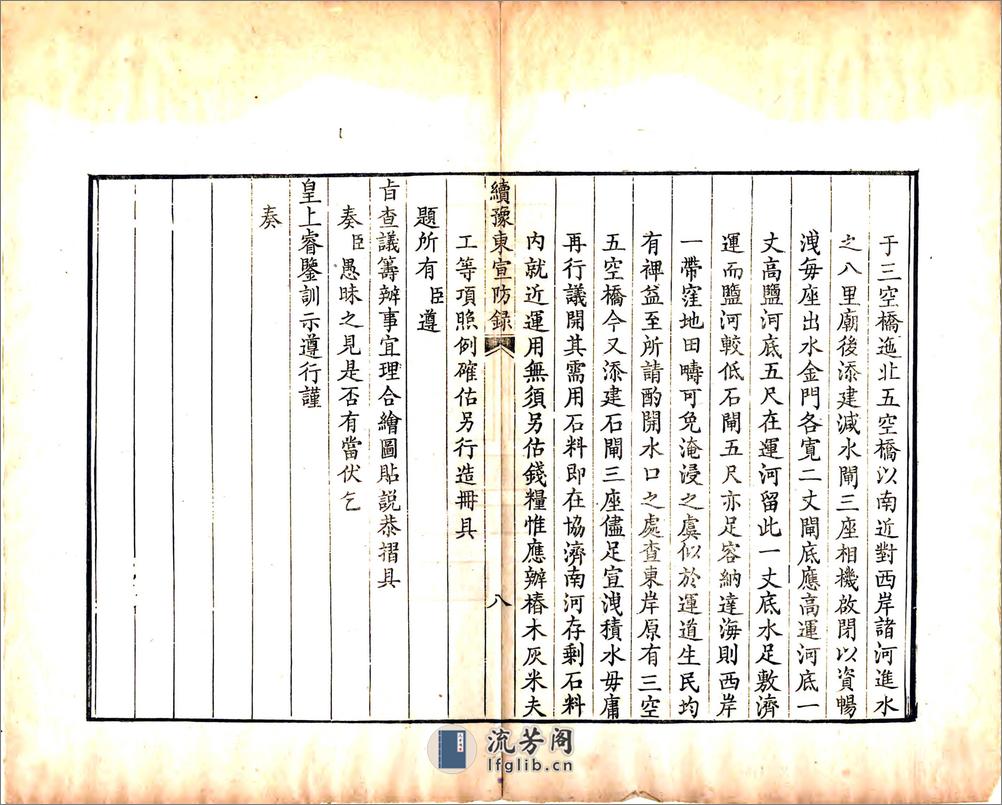 于三空橋迤北五空橋以南近對西岸諸河進水
之八里廟後添建減水閘三座相機啟閉以資暢
洩每座出水金門各寬二丈閘底應高運河底一
丈高鹽河底五尺在運河留此一丈底水足敷濟
運而鹽河較低石閘五尺亦足容納達海則西岸
一帶窪地田疇可免淹浸之虞似於運道生民均
有裨益至所請酌開水口之處查東岸原有三空
五空橋今又添建石閘三座儘足宣洩積水毋庸
再行議開其需用石料即在協濟南河存剩石料
内就近運用無須另估錢糧惟應辦樁木灰米夫
續豫東宣防録 八
工等項照例確估另行造冊具
題所有臣遵
旨查議籌辦事宜理合繪圖貼説恭摺具
奏臣愚昧之見是否有當伏乞
皇上睿鑒訓示遵行謹
奏
流芳阁
lfglib.cn